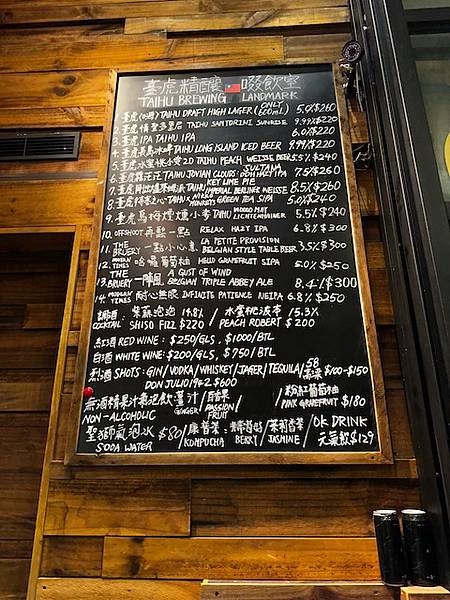 臺虎精釀 啜飲室
TAIHU BREWING LANDMARK
1. 臺虎 TAIHU DRAFT HIGH LAGER (ONLY 600mL) 5.0% $260
2. 臺虎 TAIHU SANTORINI SUNRISE 9.99% $220
3. 臺虎 IPA TAIHU IPA 6.0% $220
4. 臺虎長島冰啤 TAIHU LONG ISLAND ICED BEER 9.99% $220
5. 臺虎水蜜桃小麥2.0 TAIHU PEACH WEISSE BEER 5.5% $240
6. 臺虎 TAIHU JOVIAN CLOUDS: SULTANA OOH HAZY IPA 7.5% $260
7. 臺虎 TAIHU KEY LIME PIE IMPERIAL BERLINER WEISSE 8.5% $260
8. 臺虎 TAIHU GREEN TEA SIPA 5.0% $240
9. 臺虎烏梅煙燻小麥 TAIHU LICHTENHAINER 5.5% $240
10. OFFSHOOT 再鬆一點 RELAX HAZY IPA 6.8% $300
11. THE BRUERY 一點小心意 LA PETITE PROVISION BELGIAN STYLE TABLE BEER 3.5% $300
12. MODERN TIMES 哈囉葡萄柚 HELLO GRAPEFRUIT SIPA 5.0% $250
13. THE BRUERY 一陣風 A GUST OF WIND BELGIAN TRIPLE ABBEY ALE 8.4% $300
14. MODERN TIMES 耐心無限 INFINITE PATIENCE NEIPA 6.8% $250
調酒: 紫蘇泡泡 14.8% / 水蜜桃波本 15.3%
COCKTAIL SHISO FIZZ $220 / PEACH ROBERT $200
紅酒 RED WINE: $250/GLS, $1000/BTL
白酒 WHITE WINE: $200/GLS, $750/BTL
烈酒 SHOTS: GIN/VODKA/WHISKEY/JAGER/TEQUILA/58高粱 $100-$150
DON JULIO 1942 $600
無酒精果汁氣泡飲 薑汁/百香果/粉紅葡萄柚
NON-ALCOHOLIC GINGER / PASSION FRUIT / PINK GRAPEFRUIT $180
聖獅氣泡水 $80/康普茶: /茉莉香茶/OK DRINK
SODA WATER KOMPUCHA BERRY/JASMINE/元氣飲 $129